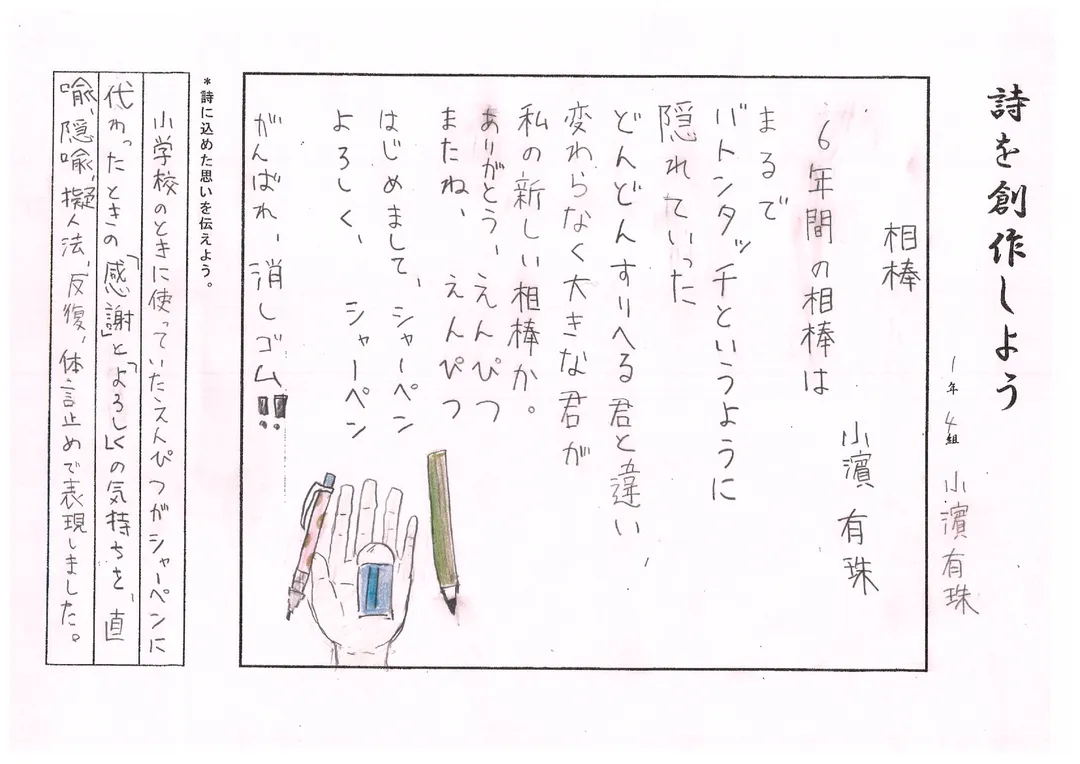 詩を創作しよう
1年4組 小濱有珠
相棒
小濱 有珠
6年間の相棒は
まるで
バトンタッチというように
隠れていった
どんどんすりへる君と違い、
変わらなく大きな君が
私の新しい相棒か。
ありがとう、えんぴつ
またね、えんぴつ
はじめまして、シャーペン
よろしく、シャーペン
がんばれ、消しゴム!!
*詩に込めた思いを伝えよう。
小学校のときに使っていたえんぴつがシャーペンに
代わったときの「感謝」と「よろしく」の気持ちを、直
喩、隠喩、擬人法、反復、体言止めで表現しました。